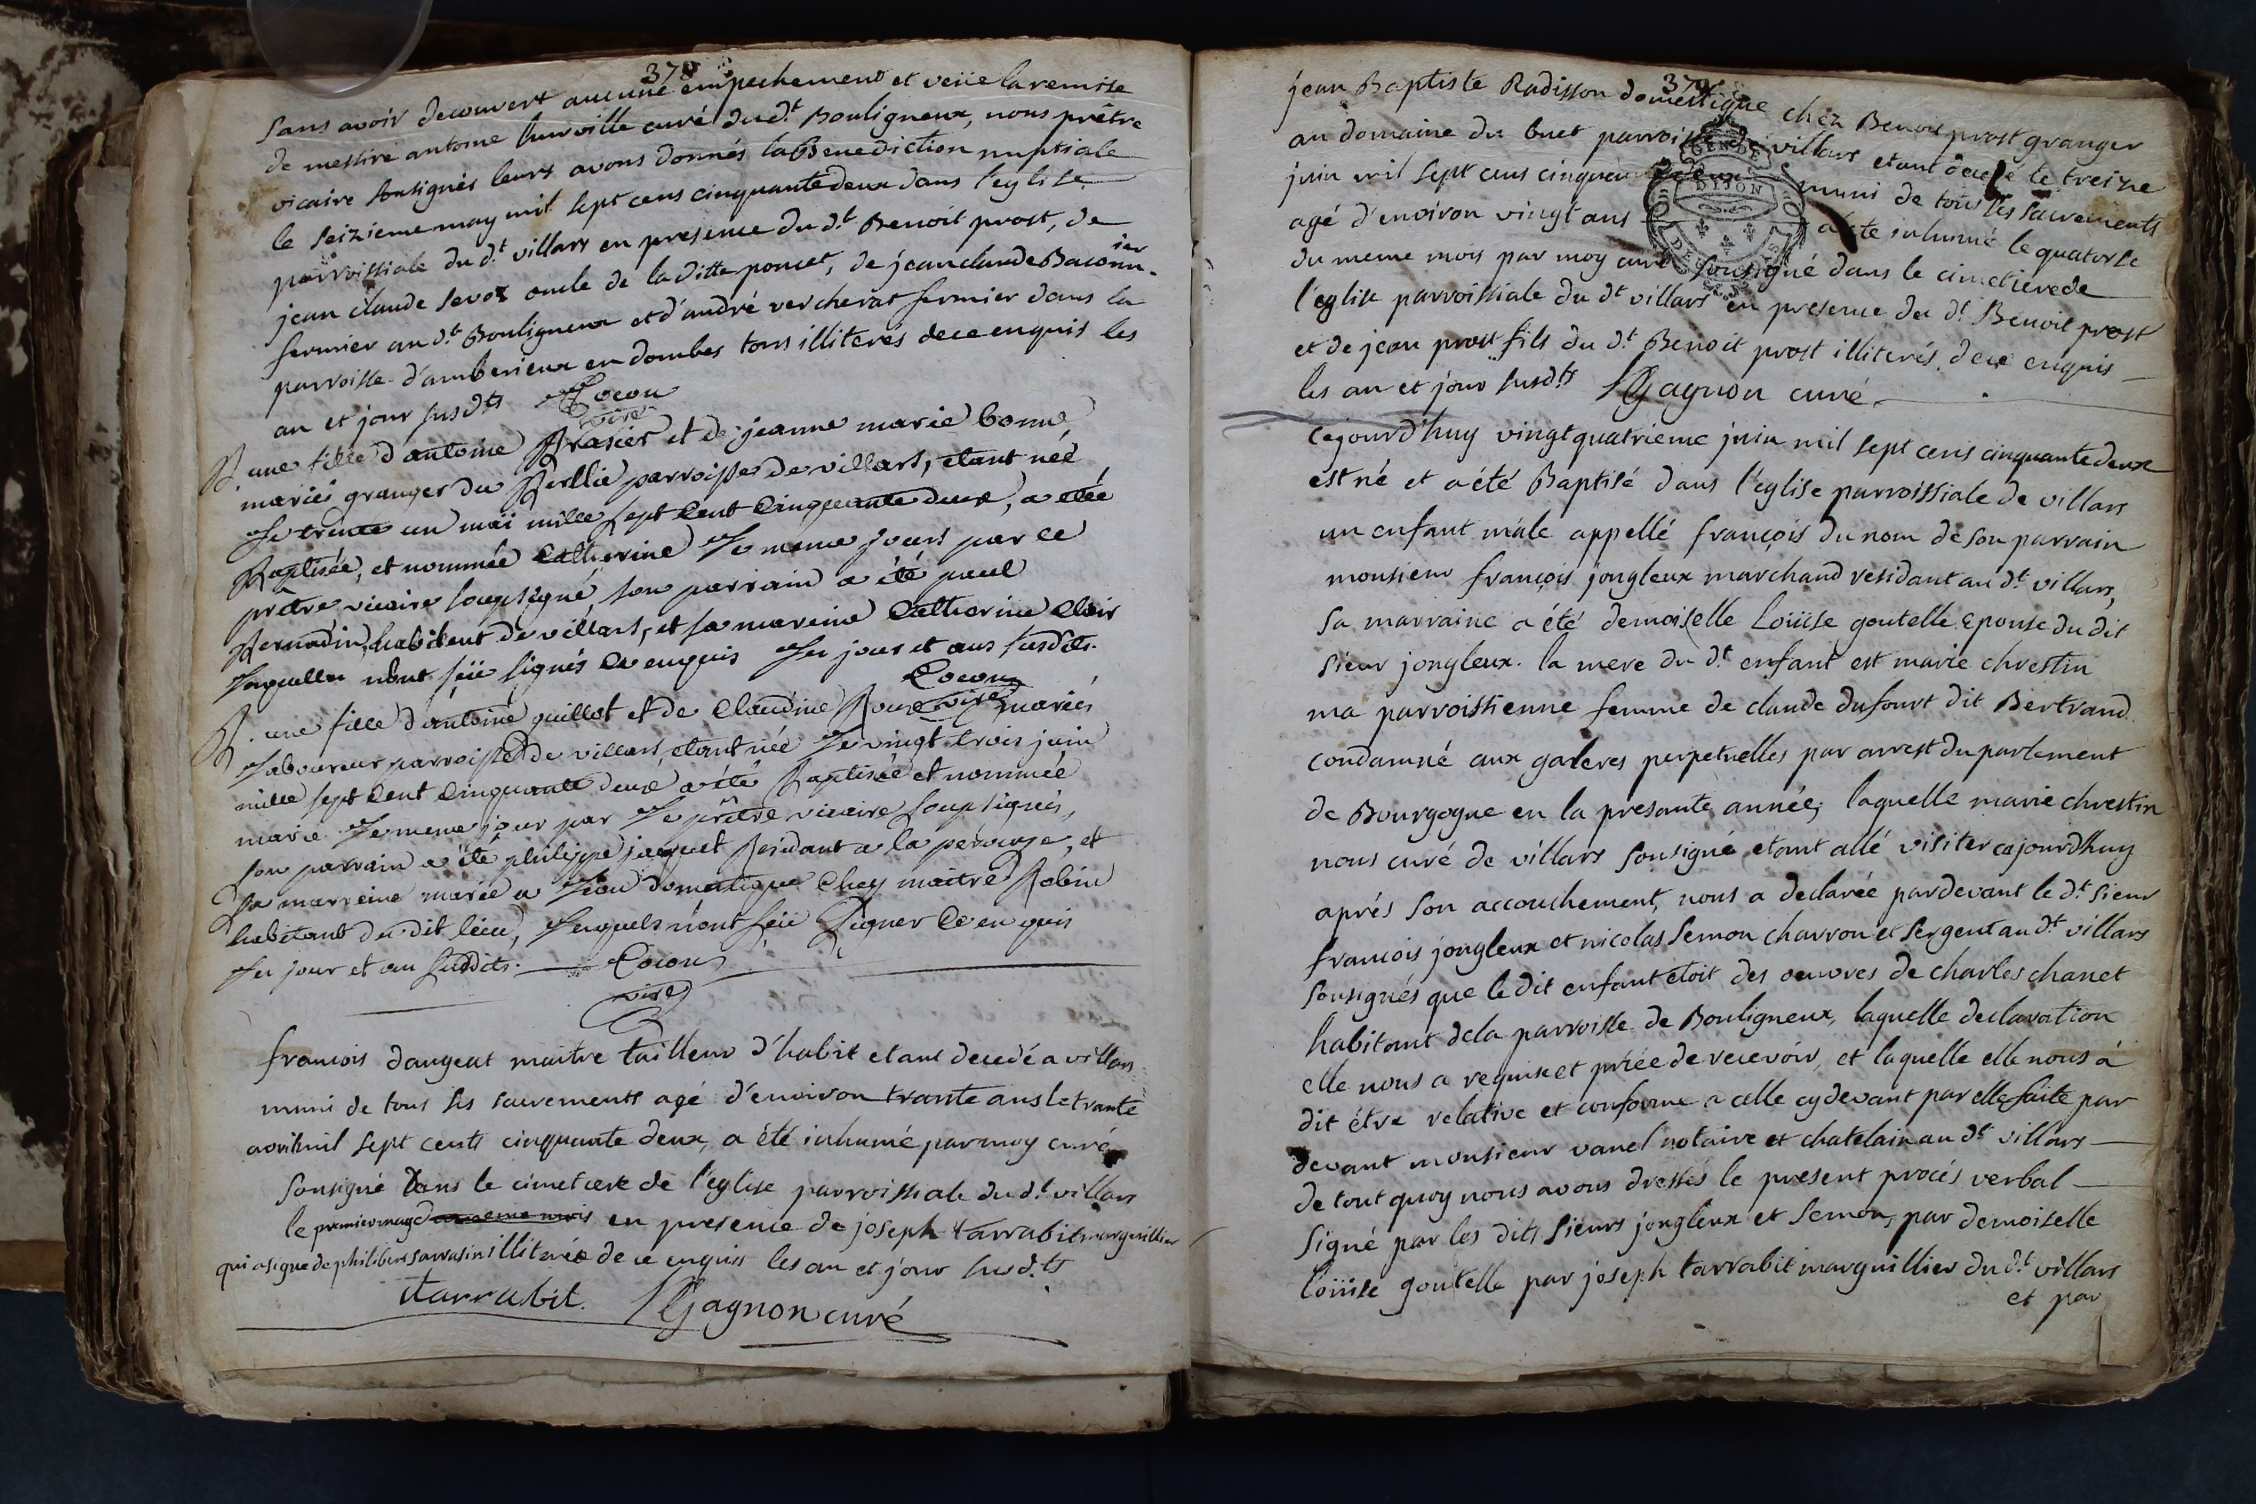 378
sans avoir decouvert aucune empechement et veüe la remise
de messire antoine hurville curé dud.t Bouligneux, nous prêtre
vicaire sousignés leurs avons donnés la Benediction nuptiale
le seizieme may mil sept cens cinquante deux dans l'eglise
parroissiale du d.t villars en presence du d.t Benoit prost, de
jean claude sevoz oncle de la ditte poncet, de jean claude Baconnier
fermier au d.t Bouligneux et d'andré vercherat fermier dans la
parroisse d'amberieux en dombes tous illiterés de ce enquis les
an et jour susd.ts Cocon
vire
B. une fille d'antoine Brasier et de jeanne marie bonne
mariés granger du parroisse de villars, etant née
le trente un mai mille sept cent cinquante deux, a etée
Baptisée, et nommée Catherine le meme jours par le
prêtre vicaire soupsigné, son parrain a été paul
Bernadin, habitent de villars, et sa mareine Catherine Clair
lesquelles n'ont sçü signés de enquis les jour et ans susdits.
Cocon
vire
B. une fille d'antoine guillot et de Claudine Roux mariés
laboureur parroisse de villars, etant née le vingt trois juin
mille sept cent cinquante deux a été Baptisée et nommée
marie le meme jour par le prêtre vicaire soupsignés,
son parrain a été philippe jaquet Residant a la perouze, et
sa marreine mariea domestique Chez maitre Robin
habitant du dit lieu, lesquels n'ont sçü signer de enquis
les jour et an susdits. Cocon
vire
francois dangeat maitre tailleur d'habit etant decedé a villars
muni de tous ses sacrements agé d'environ trante ans le trante
avril mil sept cents cinquante deux, a été inhumé par moy curé
sousigné dans le cimetiere de l'eglise parroissiale du d.t villars
le premier may en presence de joseph tarrabit marguillier
qui a signé de philibert sarrasin illiterés de ce enquis les an et jour susd.ts
tarrabit. Gagnon curé
379
jean Baptiste Radisson domestique chez Benoit prost granger
au domaine du buet parroisse de villars etant decedé le treize
juin mil sept cens cinquante deux muni de tous les sacrements
agé d'environ vingt ans a été inhumé le quatorse
du meme mois par moy curé sousigné dans le cimetiere de
l'eglise parroissiale du d.t villars en presence du d.t Benoit prost
et de jean prost fils du d.t Benoit prost illiterés de ce enquis
les an et jour susd.ts Gagnon curé
GEN. DE DIJON
cejourd'huy vingt quatrieme juin mil sept cens cinquante deux
est né et a été Baptisé dans l'eglise parroissiale de villars
un enfant mâle appellé françois du nom de son parrain
monsieur françois jongleux marchand residant au d.t villars,
sa marraine a été demoiselle Loüise goutelle epouse du dit
sieur jongleux. la mere du d.t enfant est marie chrestin
ma parroissienne femme de claude dufourt dit Bertrand
condamné aux galeres perpetuelles par arrest du parlement
de Bourgogne en la presante année, laquelle marie chrestin
nous curé de villars sousigné etant allé visiter cejourd'huy
aprés son accouchement, nous a declarée pardevant le d.t sieur
francois jongleux et nicolas semon charron et sergent au d.t villars
sousignés que le dit enfant etoit des oeuvres de charles chanet
habitant de la parroisse de Bouligneux, laquelle declaration
elle nous a requise et priée de recevoir, et laquelle elle nous a
dit être relative et conforme a celle cy devant par elle faite par
devant monsieur vanel notaire et chatelain au d.t villars
de tout quoy nous avons dressés le present procés verbal
signé par les dits sieurs jongleux et semon, par demoiselle
loüise goutelle par joseph tarrabit marguillier du d.t villars
et par